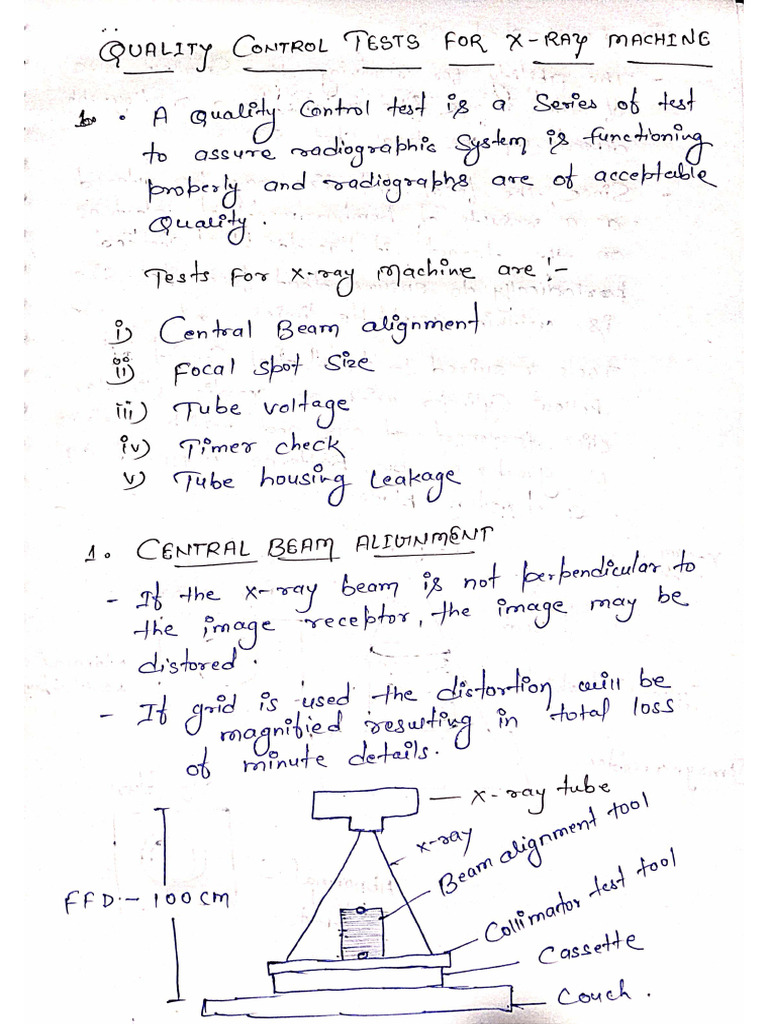 QUALITY CONTROL TESTS FOR X-RAY MACHINE
1. • A Quality Control test is a Series of test
to assure radiographic System is functioning
properly and radiographs are of acceptable
Quality.
Tests for X-ray Machine are :-
i) Central Beam alignment
ii) Focal Spot Size
iii) Tube voltage
iv) Timer check
v) Tube housing Leakage
1. CENTRAL BEAM ALIGNMENT
- If the X-ray beam is not perpendicular to
the image receptor, the image may be
distored.
- If grid is used the distortion will be
magnified resulting in total loss
of minute details.
X-ray tube
X-ray
Beam alignment tool
FFD - 100 cm
Collimator test tool
Cassette
Couch.